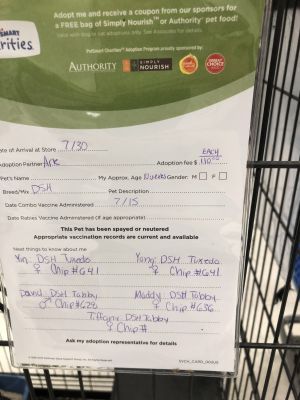 Adopt me and receive a coupon from our sponsors for
a FREE bag of Simply Nourish™ or Authority® pet food!
Valid with dog or cat adoptions only. See Associate for details.
SMART
rities
PetSmart Charities® Adoption Program proudly sponsored by:
AUTHORITY SIMPLY NOURISH GREAT CHOICE
ate of Arrival at Store 7/30
EACH
Adoption Partner Adoption fee $
Pet's Name My Approx. Age Gender: M F
Breed/Mix DSH Pet Description
Date Combo Vaccine Administered 7/15
Date Rabies Vaccine Administered (if age appropriate)
This Pet has been spayed or neutered
Appropriate vaccination records are current and available
Neat things to know about me
Yin DSH Tuxedo Yang: DSH Tuxedo
♀ Chip #641 ♀ Chip #641
David DSH Tabby Maddy DSH Tabby
♂ Chip #622 ♀ Chip #636
Tiffany DSH Tabby
♀ Chip #
Ask my adoption representative for details